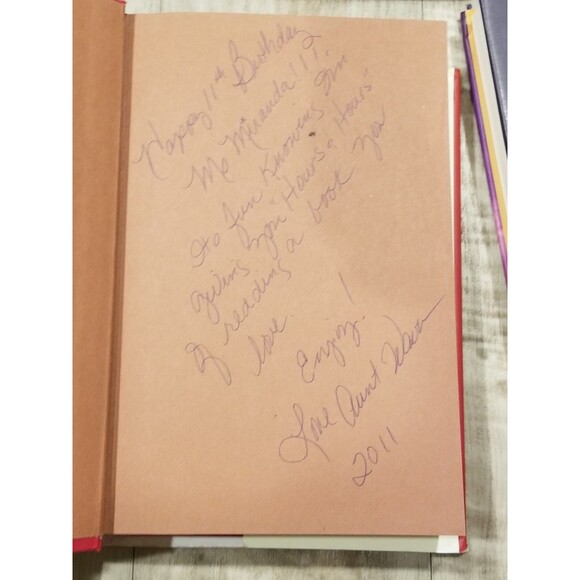 Happy 11th Birthday
Ms Miranda!!!
Its fun knowing I'm
giving you Hours & Hours
of reading a book you
love.
Enjoy!
Love Aunt
2011